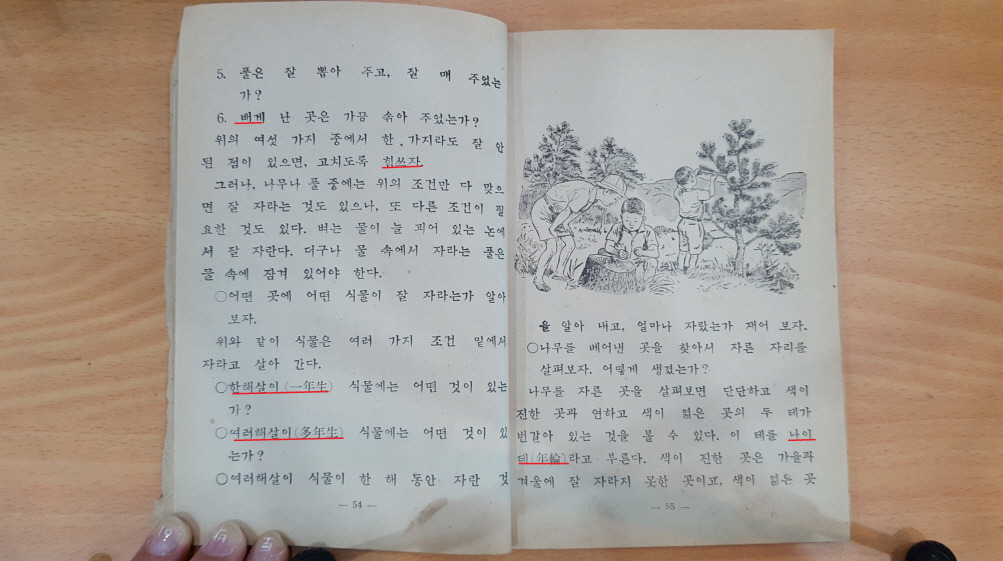 5. 풀은 잘 뽑아 주고, 잘 매 주었는
가?
6. 배게 난 곳은 가끔 솎아 주었는가?
위의 여섯 가지 중에서 한 가지라도 잘 안
된 점이 있으면, 고치도록 힘쓰자.
그러나, 나무나 풀 중에는 위의 조건만 다 맞으
면 잘 자라는 것도 있으나, 또 다른 조건이 필
요한 것도 있다. 벼는 물이 늘 괴어 있는 논에
서 잘 자란다. 더구나 물 속에서 자라는 풀은
물 속에 잠겨 있어야 한다.
○어떤 곳에 어떤 식물이 잘 자라는가 알아
보자.
위와 같이 식물은 여러 가지 조건 밑에서
자라고 살아 간다.
○한해살이(一年生) 식물에는 어떤 것이 있는
가?
○여러해살이(多年生) 식물에는 어떤 것이 있
는가?
○여러해살이 식물이 한 해 동안 자란 것
— 54 —
을 알아 내고, 얼마나 자랐는가 재어 보자.
○나무를 베어낸 곳을 찾아서 자른 자리를
살펴보자. 어떻게 생겼는가?
나무를 자른 곳을 살펴보면 단단하고 색이
진한 곳과 연하고 색이 엷은 곳의 두 테가
번갈아 있는 것을 볼 수 있다. 이 테를 나이
테(年輪)라고 부른다. 색이 진한 곳은 가을과
겨울에 잘 자라지 못한 곳이고, 색이 엷은 곳
— 55 —